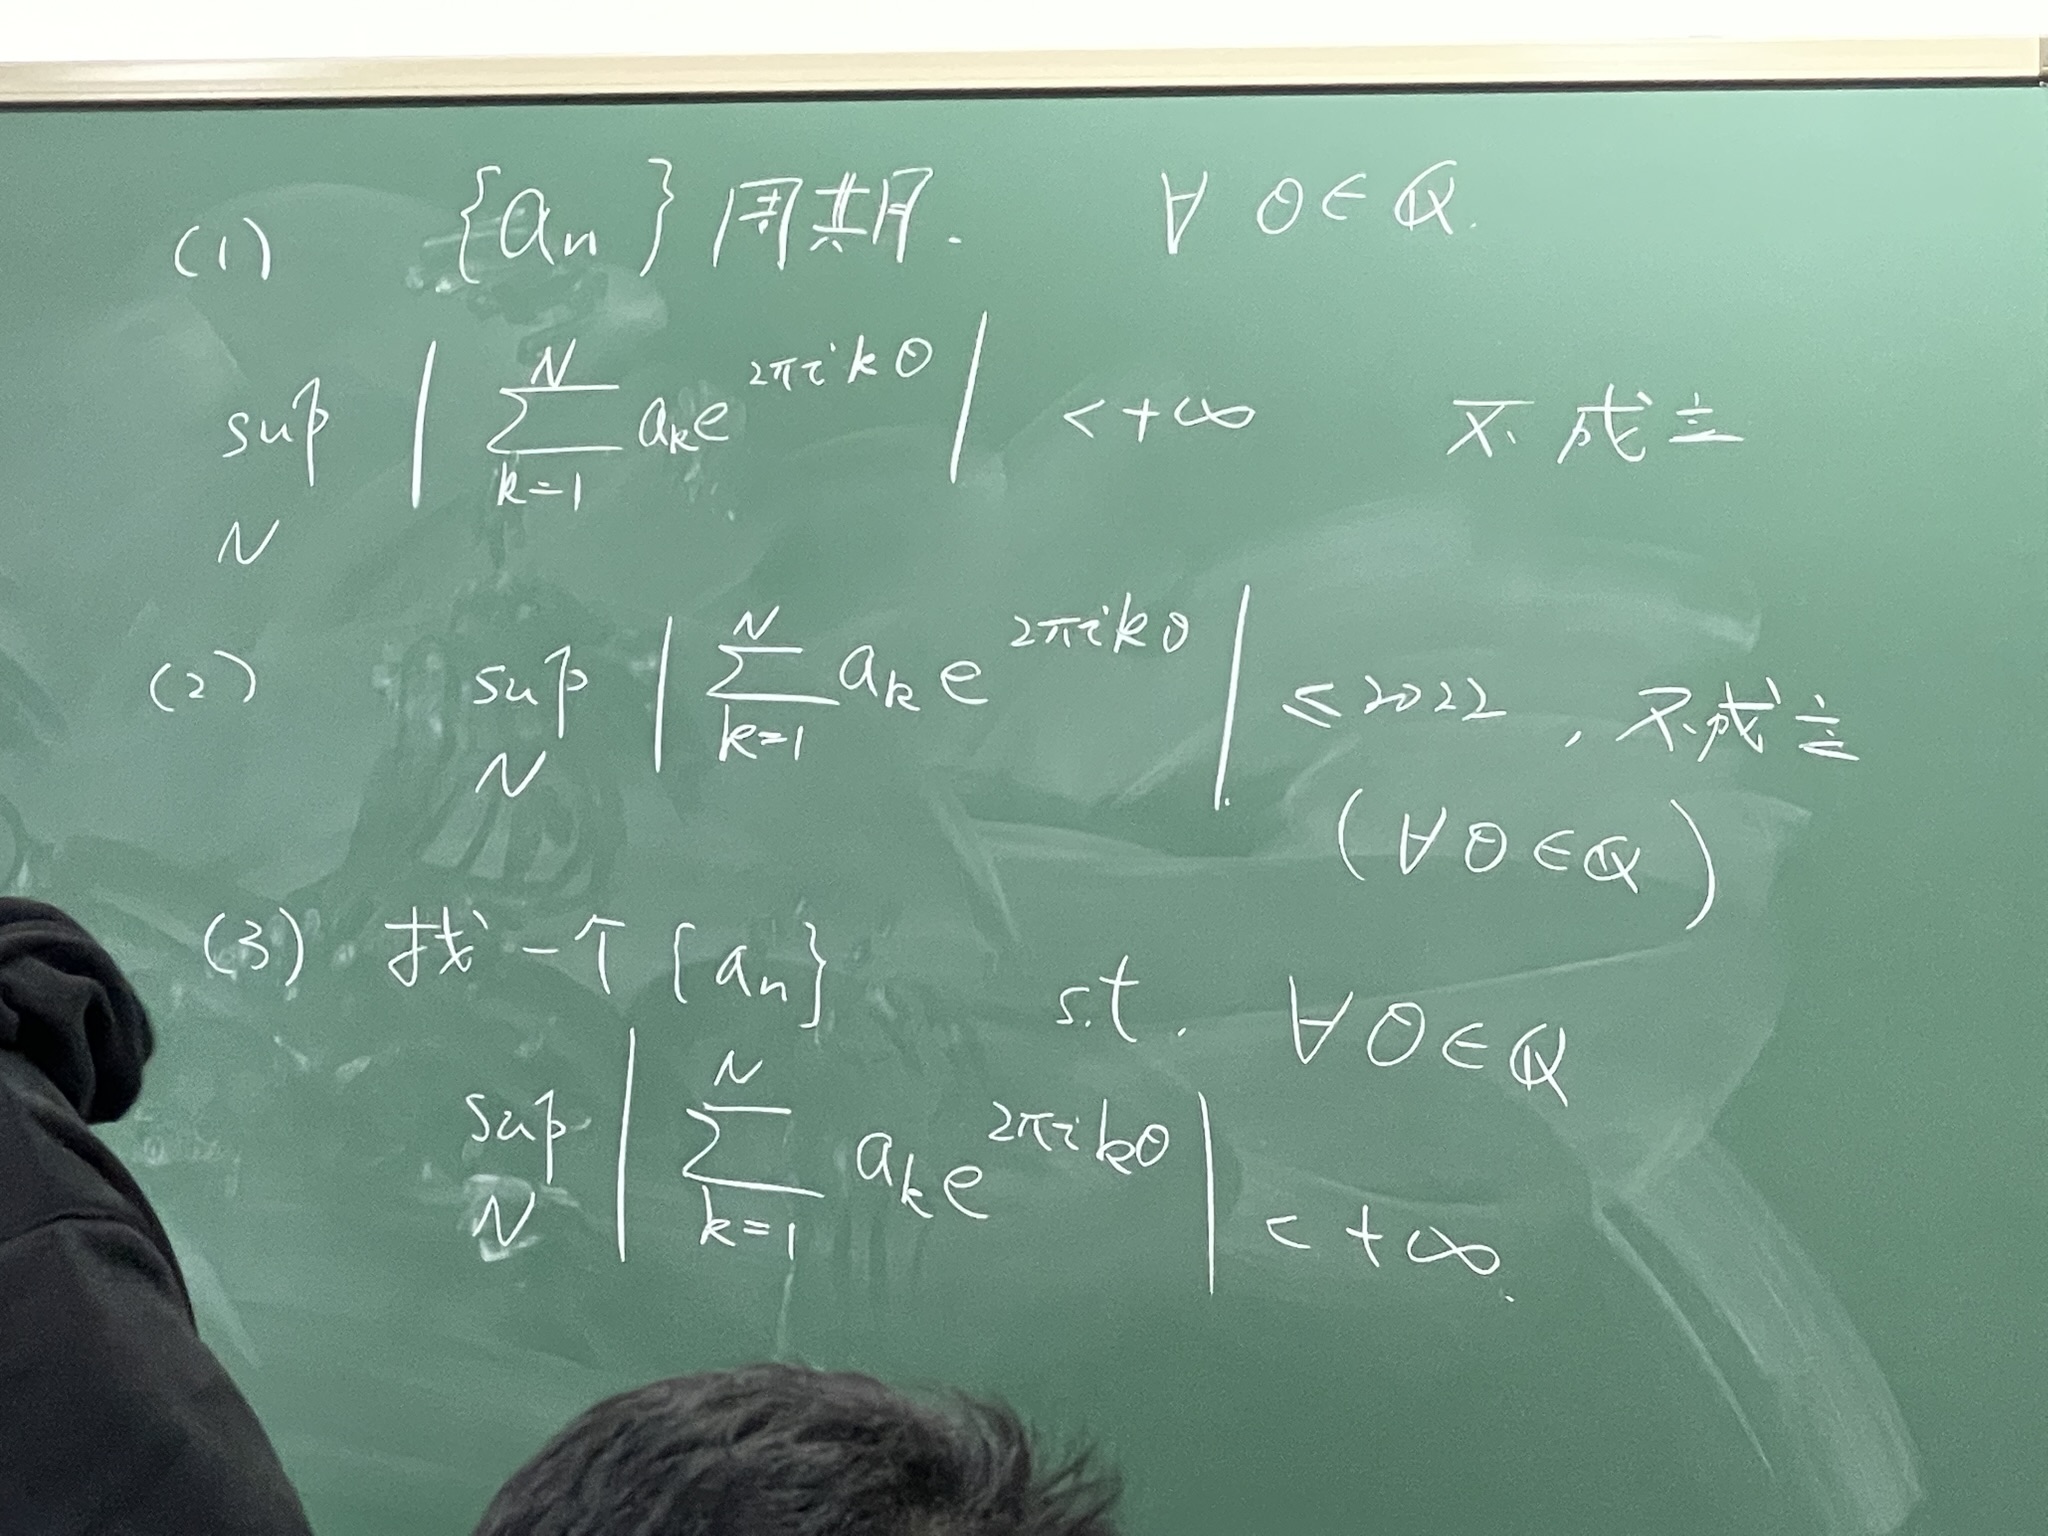 (1) {aₙ} 周期. ∀ θ∈ℚ.
sup_N | ∑_{k=1}^{N} a_k e^{2πikθ} | < +∞ 不成立
(2) sup_N | ∑_{k=1}^{N} a_k e^{2πikθ} | ≤ 2022, 不成立
(∀θ∈ℚ)
(3) 找一个 {aₙ} s.t. ∀θ∈ℚ
sup_N | ∑_{k=1}^{N} a_k e^{2πikθ} | < +∞.